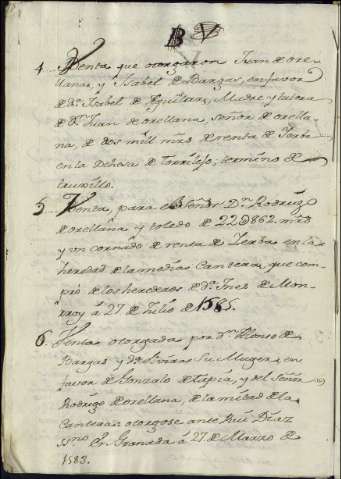 B V
4 Venta que otorgaron Juan de ore
llana, y Isabel de Bargas, en favor
de Dª Isabel de Aguilar, Madre y tutora
de Dn Juan de orellana, señor de orella
na, de dos mil mrs de renta de Yerba
en la dehesa de torrilejo, termino de
truxillo.
5 Venta, para el Señor Dn Rodrigo
de orellana y toledo de 22D862 mrs
y un cornado de renta de Yerbas en la
heredad de la media Cantera, que com
pró de los herederos de Dª Ines de Mon
rroy á 27 de Julio de 1585.
6 Ventas otorgada por Dn Alonso de
Bargas y Dª Su Muger, en
favor de Gonzalo de tapia, y del Señor
Rodrigo de orellana, de la mitad de la
Cantera otorgose ante Rui Diaz
ssno En Granada á 27 de Marzo de
1583.